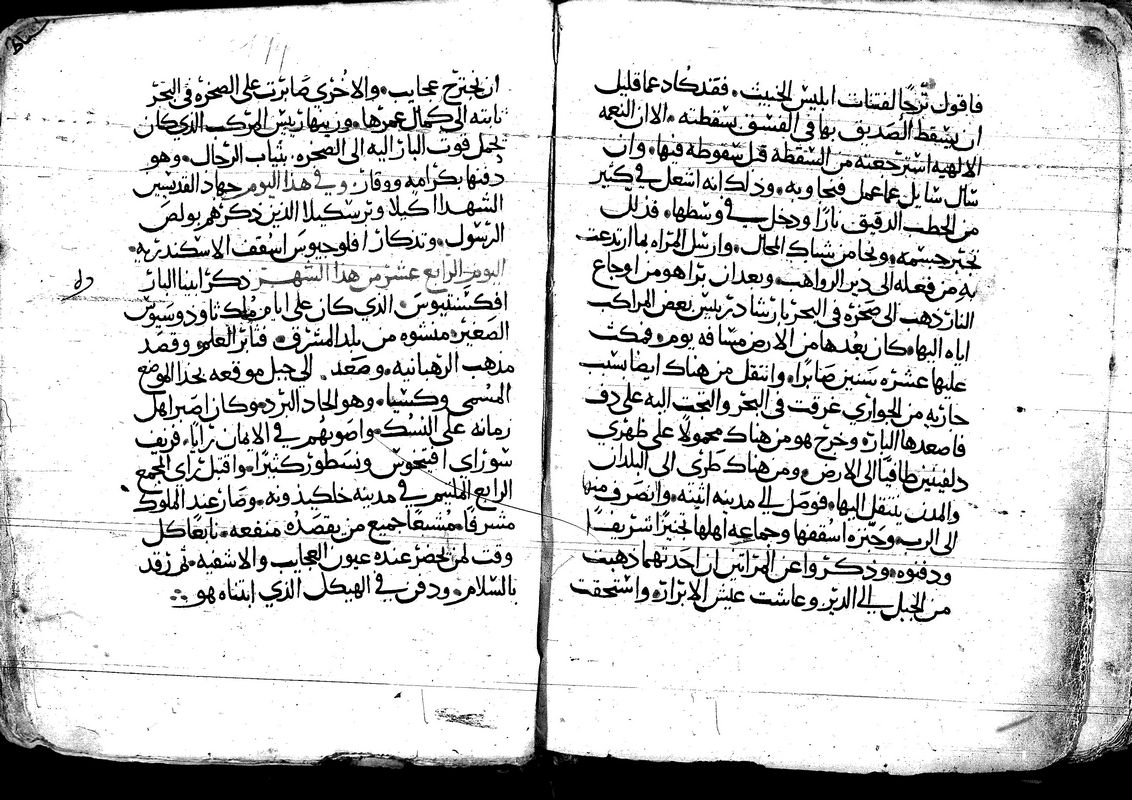 فاقول ترجا لفتنات ابليس الخبيث. فقد كاد عما قليل
ان يسقط الصديق بها في الفسق بسقطته. الا ان النعمه
الالهيه استرجعته من السقطه قبل سقوطه فيها. وان
سال سايل عما عمل فنجاوبه. وذلك انه اشعل في كثير
من الحطب الدقيق نارا ودخل في وسطها. فذلك
تخبر جسمه. ونجا من شباك المحال. وارسل المراه بما ارتدعت
به من فعله الى دير الرواهب. وبعد ان برا هو من اوجاع
النار ذهب الى صخره في البحر بارشاد رييس بعض المراكب
اياه اليها. كان بعدها من الارض مسافه يوم. فمكث
عليها عشره سنين صابرا. وانتقل من هناك ايضا بسبب
جاريه من الجواري غرقت في البحر والتجت اليه على دف
فاصعدها البار. وخرج هو من هناك محمولا على ظهري
دلفينين طافيا الى الارض. ومن هناك طرى الى البلدان
والمدن ينتقل اليها. فوصل الى مدينه اثينه. وانصرف منها
الى الرب. وجنزه اسقفها وجماعه اهلها تجنيزا شريفا
ودفنوه. وذكروا عن المراتين ان احدتهما ذهبت
من الجبل الى الدير وعاشت عيش الابرار. واستحقت
ان تجترح عجايب. والاخرى صابرت على الصخره في البحر
ثابته الى كمال عمرها. وزينها رييس المركب الذي كان
يحمل قوت البار اليه الى الصخره. بثياب الرجال. وهو
دفنها بكرامه ووقار. وفي هذا اليوم جهاد القديسين
الشهدا اكيلا وبرسكيلا الذين ذكرهم بولص
الرسول. وتدكار افلوجيوس اسقف الاسكندريه.
اليوم الرابع عشر من هذا الشهر ذكر ابينا البار
افكسنتيوس. الذي كان على ايام ملك ثاودوسيوس
الصغير. منشوه من بلد المشرق. فتاثر العلم وقصد
مذهب الرهبانيه. وصعد الى جبل موقعه بحذا الموضع
المسمى وكسيا. وهو الحاد البرد. وكان اصبر اهل
زمانه على النسك. واصوبهم في الامان رايا. فزيف
سوراي افتيخوس ونسطور كثيرا. واقبل راي المجمع
الرابع الملتيم في مدينه خلكيذونه. وصار عند الملوك
مشرفا. مشبعا جميع من يقصده منفعه. نابعا كل
وقت لمن يحضر عنده عيون العجايب والاشفيه. ثم رقد
بالسلام. ودفن في الهيكل الذي ابتناه هو